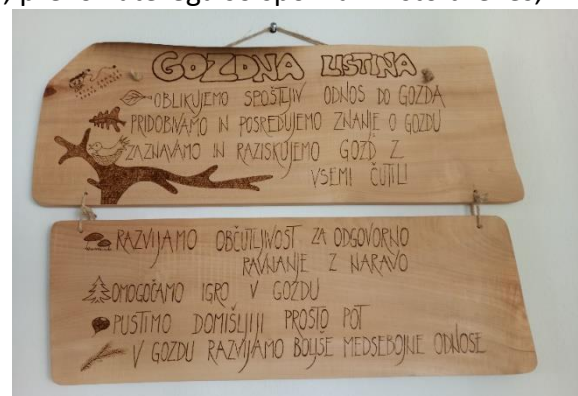 GOZDNA LISTINA
OBLIKUJEMO SPOŠTLJIV ODNOS DO GOZDA
PRIDOBIVAMO IN POSREDUJEMO ZNANJE O GOZDU
ZAZNAVAMO IN RAZISKUJEMO GOZD Z
VSEMI ČUTILI
RAZVIJAMO OBČUTLJIVOST ZA ODGOVORNO
RAVNANJE Z NARAVO
OMOGOČAMO IGRO V GOZDU
PUSTIMO DOMIŠLJIJI PROSTO POT
V GOZDU RAZVIJAMO BOLJŠE MEDSEBOJNE ODNOSE